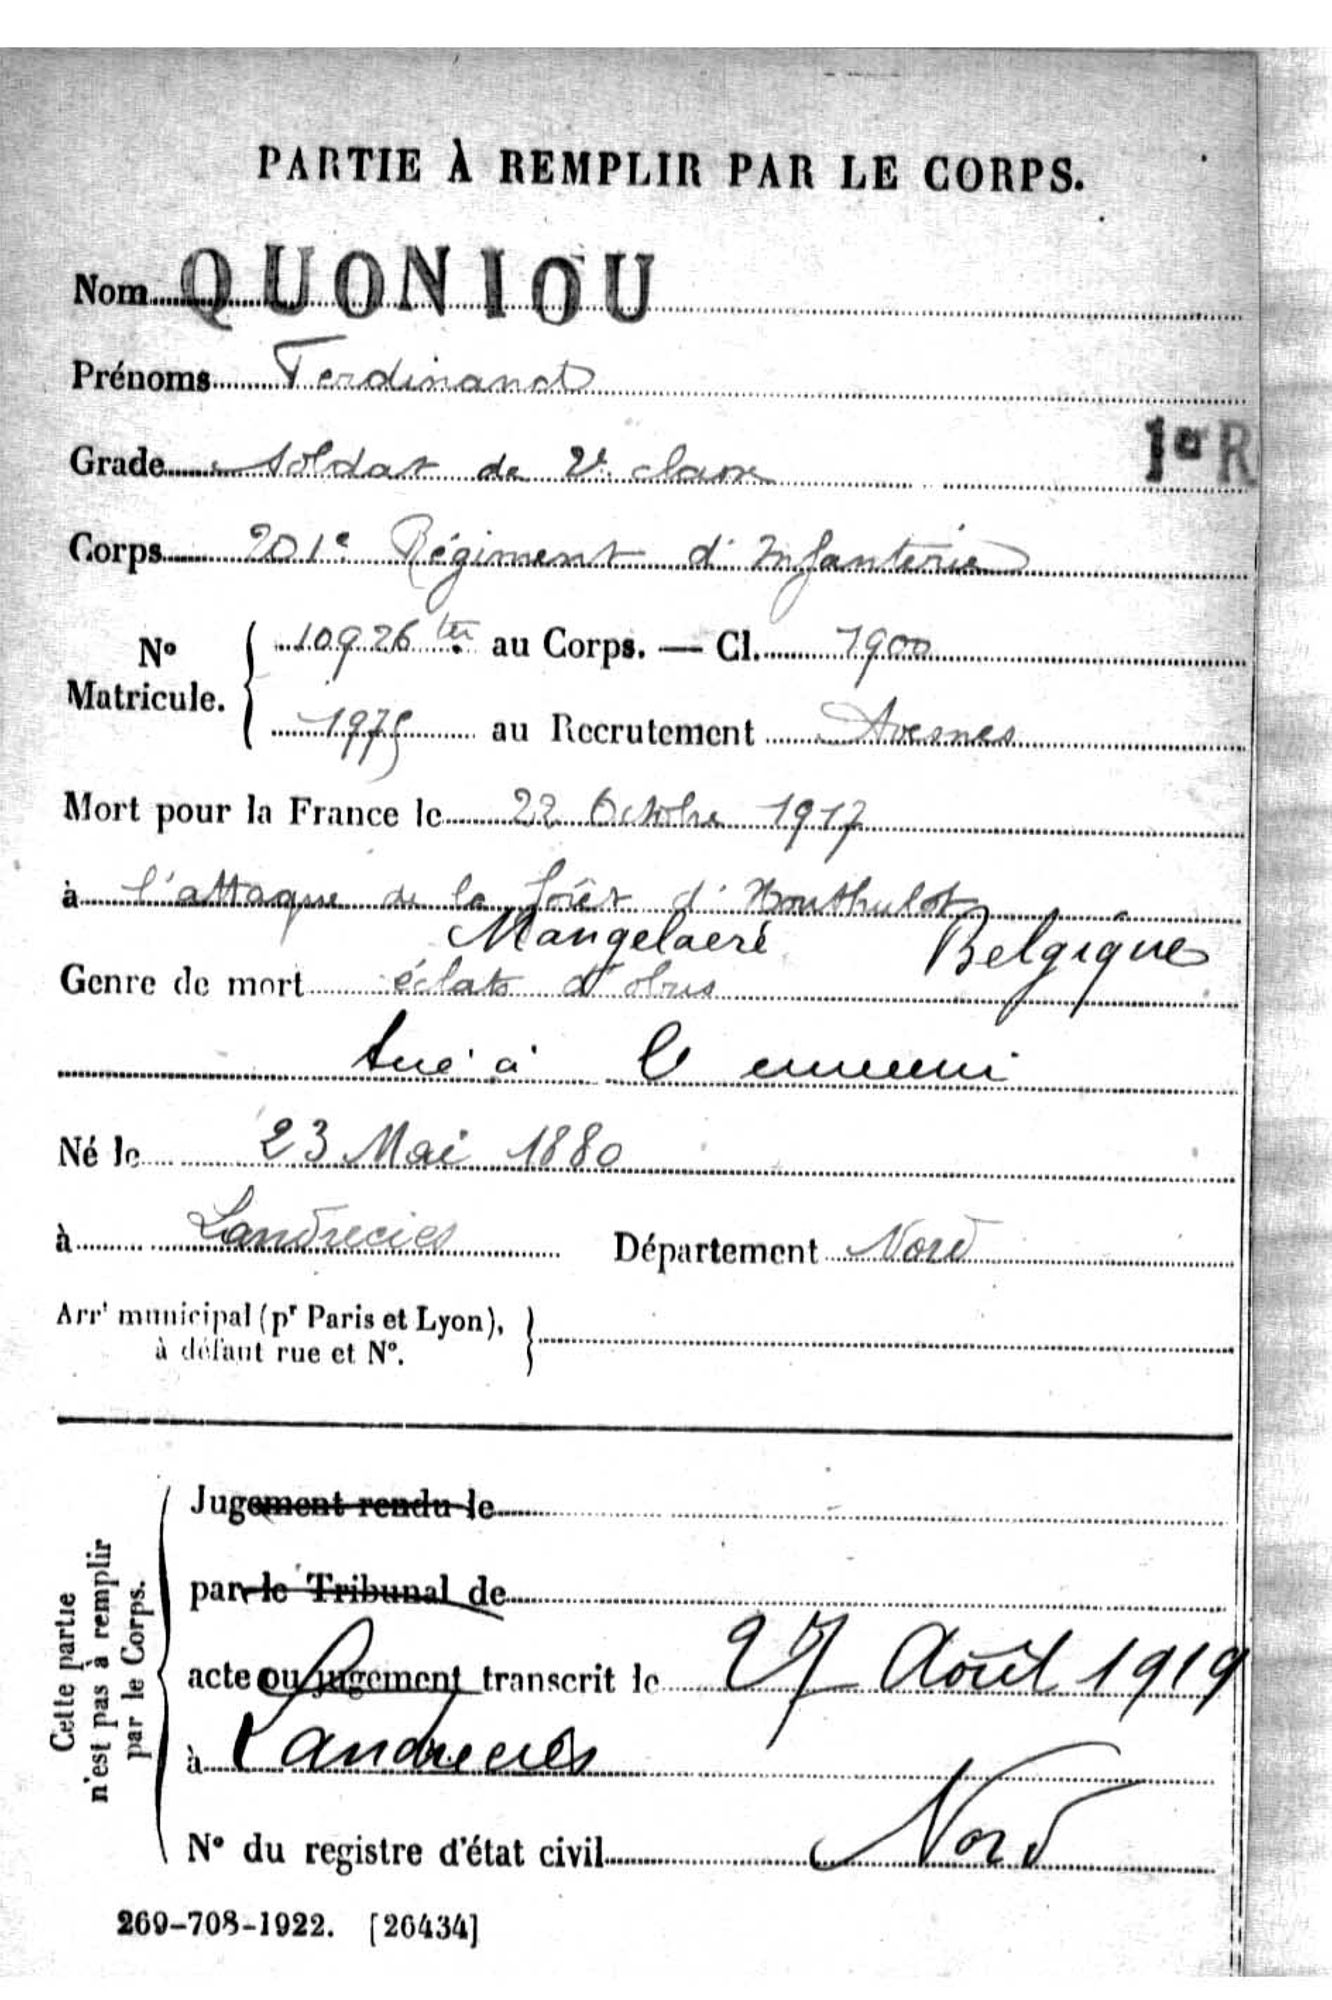 PARTIE À REMPLIR PAR LE CORPS.
Nom QUONIOU
Prénoms Ferdinand
Grade soldat de 2e classe
1er R
Corps 201e Régiment d'Infanterie
No Matricule. { 10926 ter au Corps. — Cl. 1900
1975 au Recrutement Avesnes
Mort pour la France le 22 Octobre 1917
à l'attaque de la forêt d'Houthulst
Mangelaeré Belgique
Genre de mort éclats d'obus
tué à l'ennemi
Né le 23 Mai 1880
à Landrecies Département Nord
Arrt municipal (pr Paris et Lyon), à défaut rue et No. }
Cette partie n'est pas à remplir par le Corps.
Jugement rendu le
par le Tribunal de
acte ou jugement transcrit le 27 Août 1919
à Landrecies
No du registre d'état civil Nord
269-708-1922. [26434]